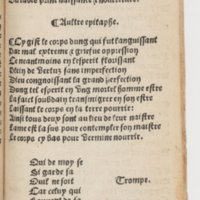 ¶Aultre epitaphe.
¶Cy gist le corps dung qui fut languissant
Par mal extreme & griefue oppression
Ce neantmoins en lesperit florissant
Plein de vertuz sans imperfection
Dieu congnoissant sa grand perfection
Dung tel esperit en ung mortel homme estre
La faict soubdain transmigrer en son estre
Laissant le corps en la terre pourrir:
Ainsi tous deux sont au lieu de leur naistre
Lame est la sus pour contempler son maistre
Le corps cy bas pour vermine nourrir.
Qui de moy se
Si garde sa
Quil ne soit Trompe.
Car celuy qui